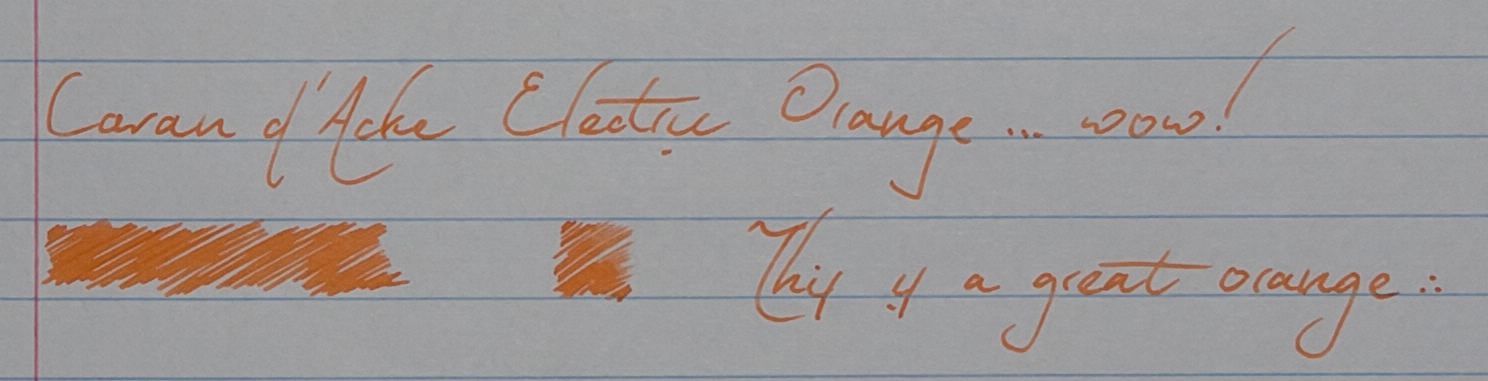 Caran d'Ache Electric Orange... wow!
This is a great orange :.